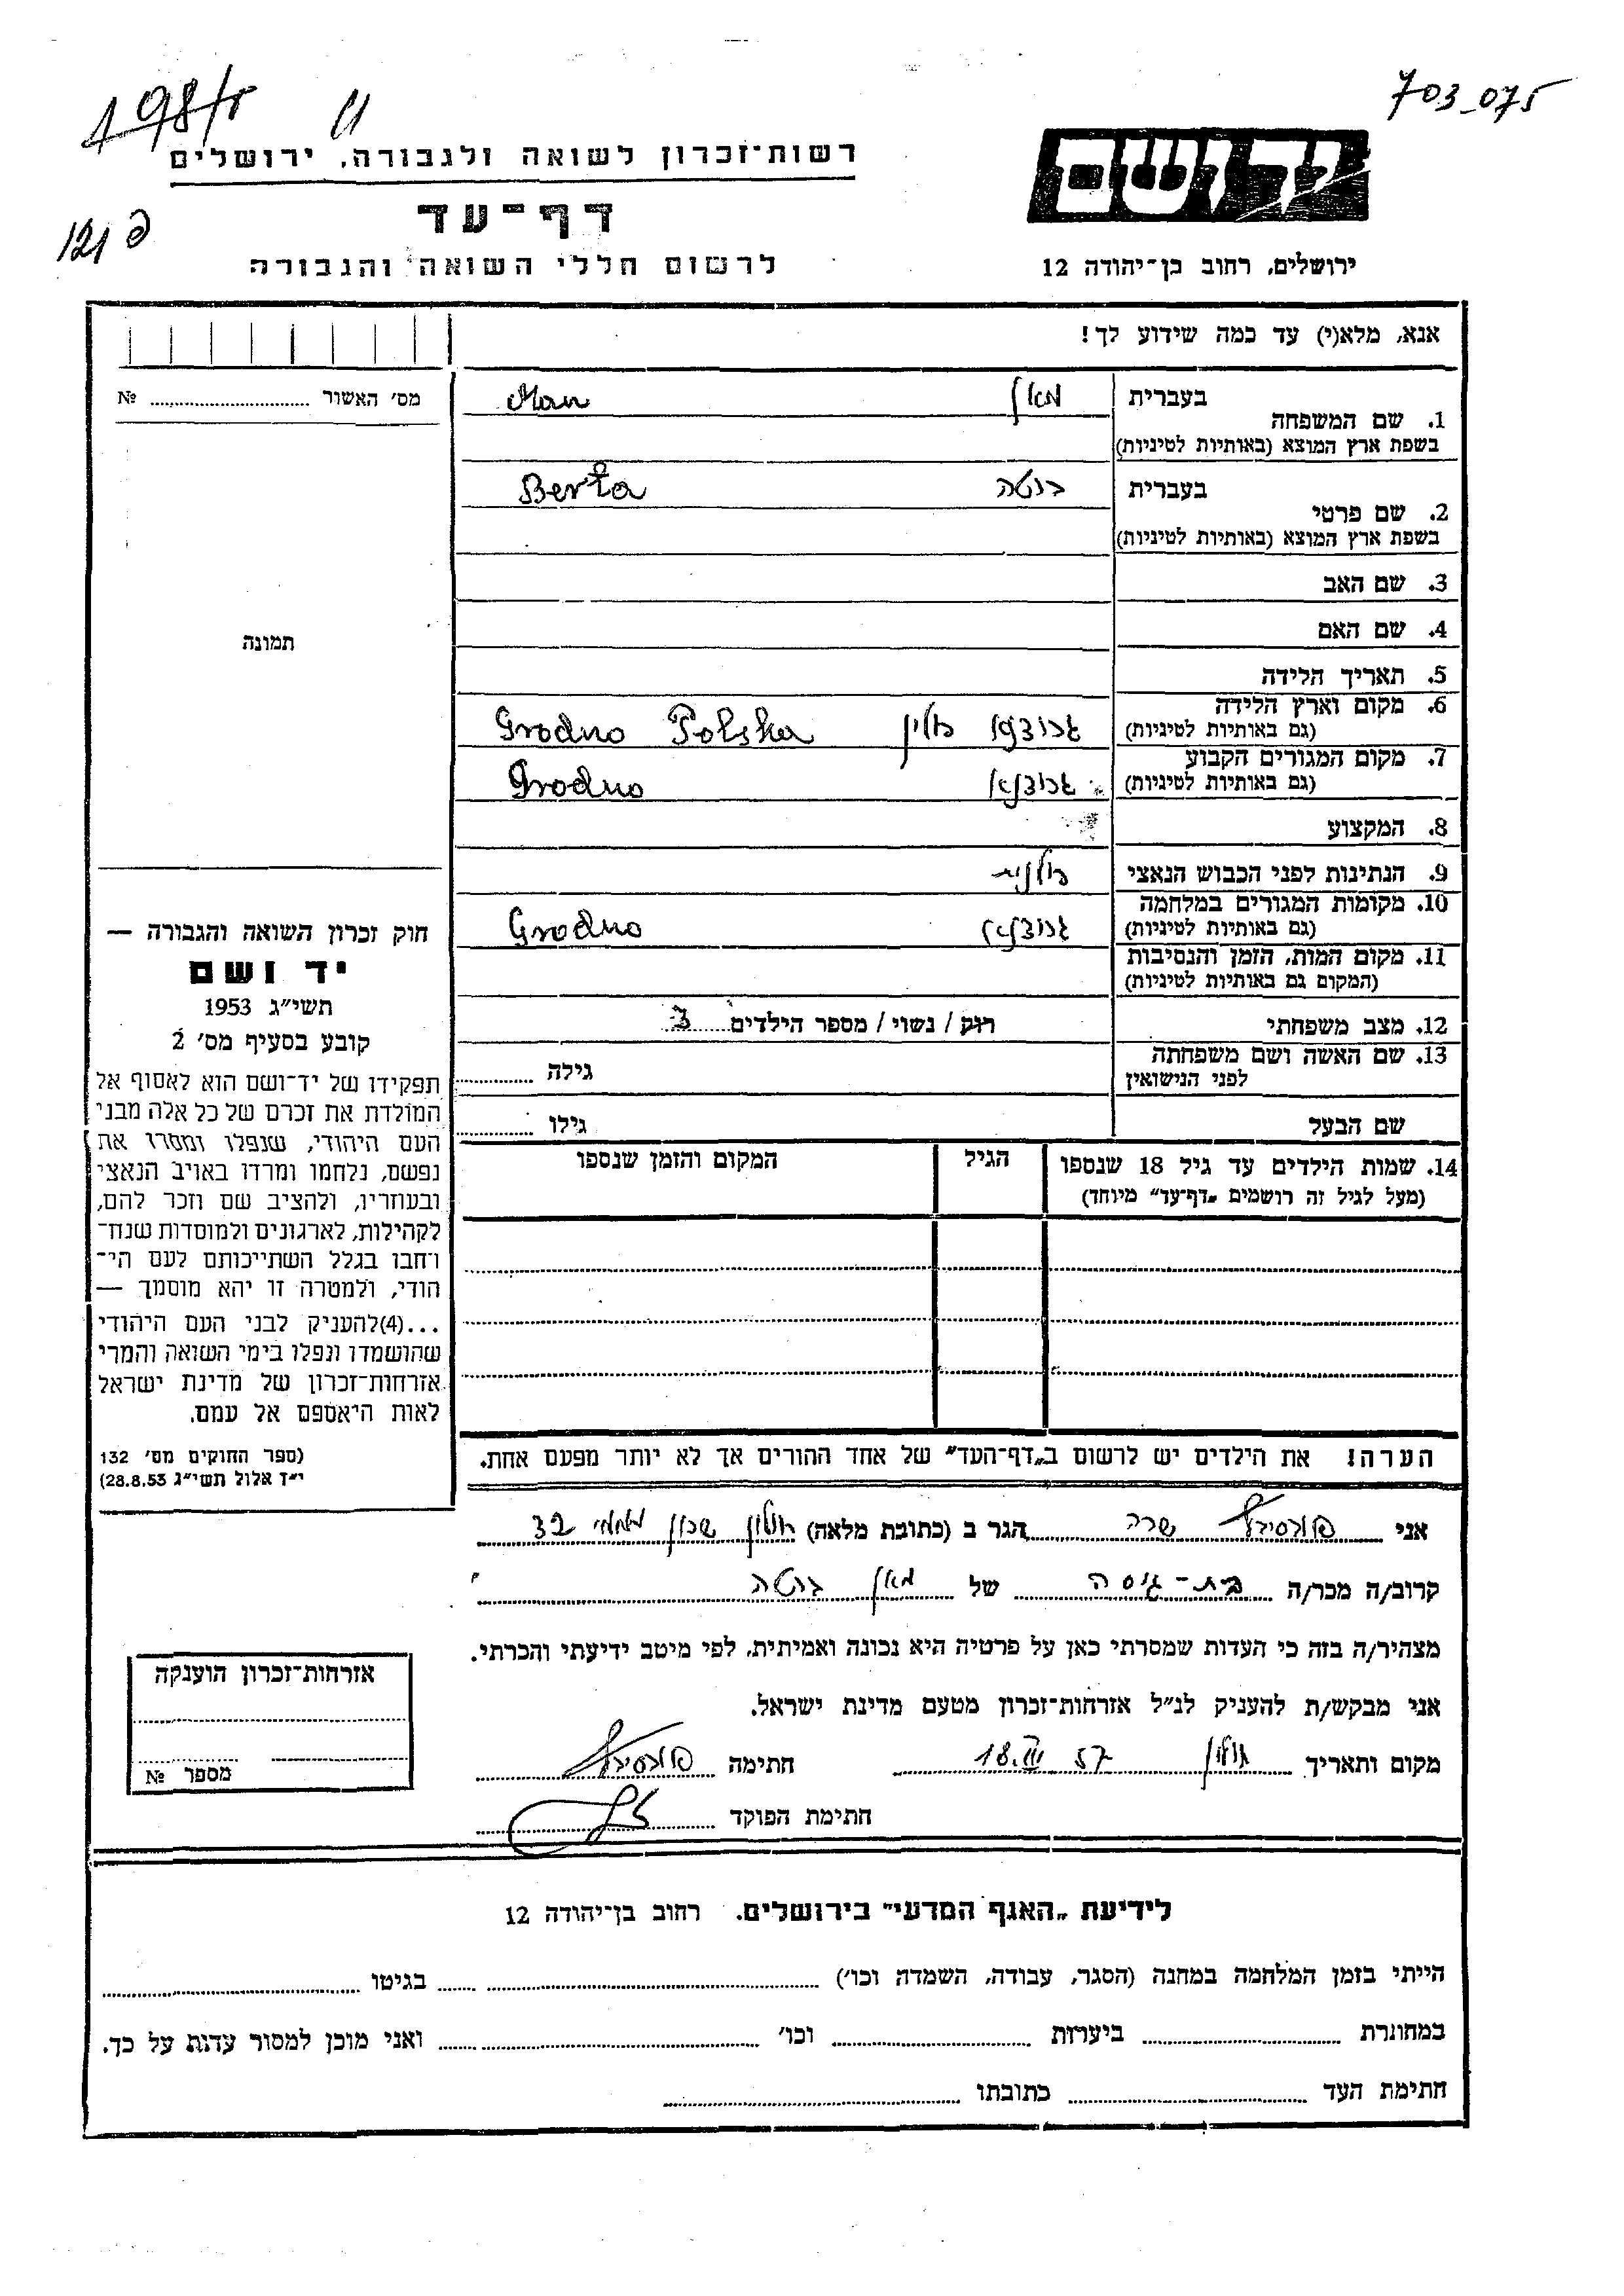 703-075
198/ד
רשות־זכרון לשואה ולגבורה, ירושלים
יד ושם
דף־עד
121 פ
לרשום חללי השואה והגבורה
ירושלים, רחוב בן־יהודה 12
אנא, מלא(י) עד כמה שידוע לך!
מס׳ האשור № 
1. שם המשפחה בעברית מאן Man
בשפת ארץ המוצא (באותיות לטיניות)
2. שם פרטי בעברית ברטה Berta
בשפת ארץ המוצא (באותיות לטיניות)
3. שם האב
4. שם האם
תמונה
5. תאריך הלידה
6. מקום וארץ הלידה
(גם באותיות לטיניות) גרודנו פולין Grodno Polska
7. מקום המגורים הקבוע
(גם באותיות לטיניות) גרודנא Grodno
8. המקצוע
9. הנתינות לפני הכבוש הנאצי פולנית
10. מקומות המגורים במלחמה
(גם באותיות לטיניות) גרודנא Grodno
11. מקום המות, הזמן והנסיבות
(המקום גם באותיות לטיניות)
12. מצב משפחתי רוק / נשוי / מספר הילדים 3
13. שם האשה ושם משפחתה
לפני הנישואין גילה
שם הבעל גילו
14. שמות הילדים עד גיל 18 שנספו הגיל המקום והזמן שנספו
(מעל לגיל זה רושמים „דף־עד״ מיוחד)
חוק זכרון השואה והגבורה —
יד ושם
תשי״ג 1953
קובע בסעיף מס׳ 2
תפקידו של יד־ושם הוא לאסוף אל
המולדת את זכרם של כל אלה מבני
העם היהודי, שנפלו ומסרו את
נפשם, נלחמו ומרדו באויב הנאצי
ובעוזריו, ולהציב שם וזכר להם,
לקהילות, לארגונים ולמוסדות שנח־
רחבו בגלל השתייכותם לעם הי־
הודי, ולמטרה זו יהא מוסמך —
...(4)להעניק לבני העם היהודי
שהושמדו ונפלו בימי השואה והמרי
אזרחות־זכרון של מדינת ישראל
לאות היאספם אל עמם.
(ספר החוקים מס׳ 132
י״ד אלול תשי״ג 28.8.53)
הערה! את הילדים יש לרשום ב„דף־העד״ של אחד ההורים אך לא יותר מפעם אחת.
אני שרה הגר ב (כתובת מלאה) חולון שכון 32
קרוב/ה מכר/ה בת-גיסה של מאן ברטה
מצהיר/ה בזה כי העדות שמסרתי כאן על פרטיה היא נכונה ואמיתית, לפי מיטב ידיעתי והכרתי.
אני מבקש/ת להעניק לנ״ל אזרחות־זכרון מטעם מדינת ישראל.
מקום ותאריך חולון 18.III 57 חתימה
חתימת הפוקד
אזרחות־זכרון הוענקה
מספר №
לידיעת „האגף המדעי״ בירושלים. רחוב בן־יהודה 12
הייתי בזמן המלחמה במחנה (הסגר, עבודה, השמדה וכו׳) בגיטו
במחתרת ביערות וכו׳ ואני מוכן למסור עדות על כך.
חתימת העד כתובתו